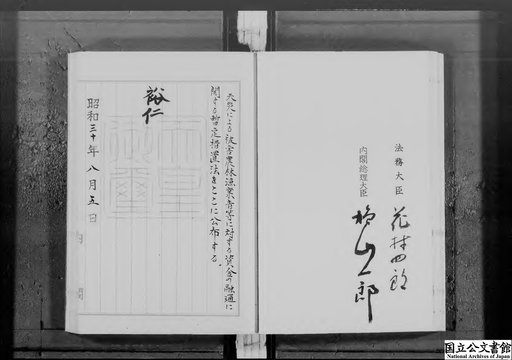 法務大臣 花村四郎
内閣総理大臣 鳩山一郎
天災による被害農林漁業者等に対する資金の融通に
関する暫定措置法をここに公布する。
裕仁
天皇御璽
昭和三十年八月五日
国立公文書館
National Archives of Japan